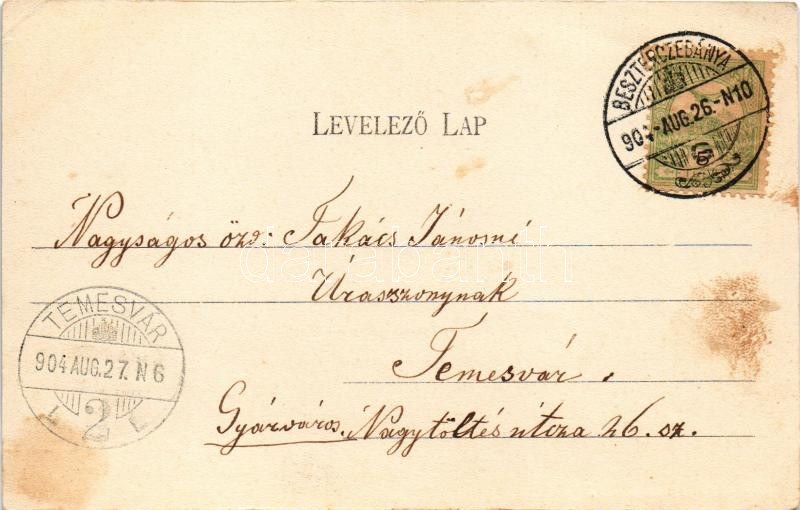 BESZTERCZEBÁNYA
904-AUG.26.-N10
LEVELEZŐ LAP
Nagyságos özv: Takács Jánosné
Úrasszonynak
Temesvár.
Gyárváros. Nagytöltés útcza 26. sz.
TEMESVÁR
904 AUG.27. N6
2